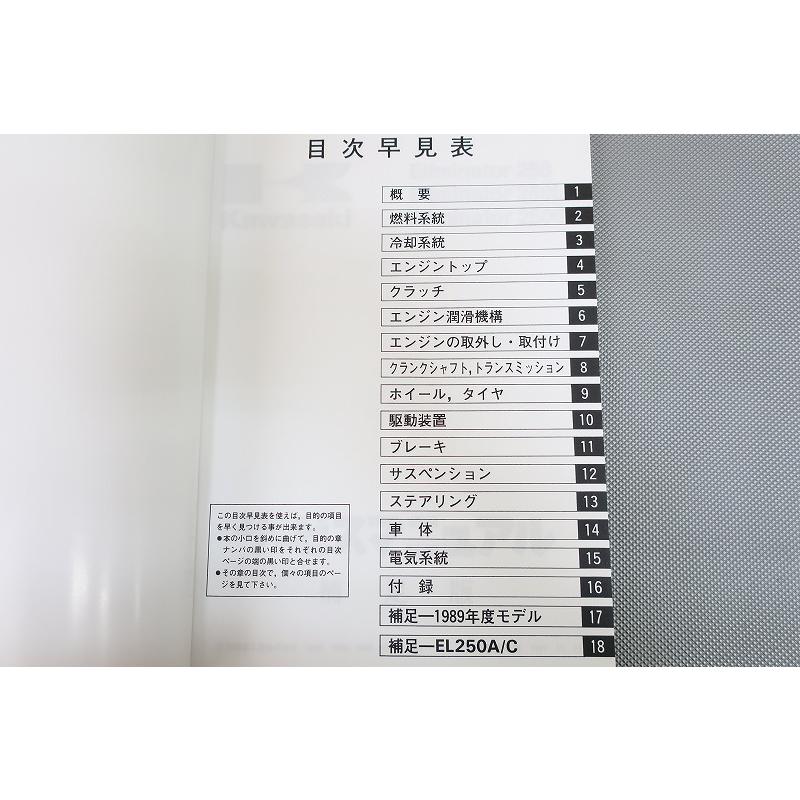 目次早見表
概要 1
燃料系統 2
冷却系統 3
エンジントップ 4
クラッチ 5
エンジン潤滑機構 6
エンジンの取外し・取付け 7
クランクシャフト,トランスミッション 8
ホイール,タイヤ 9
駆動装置 10
ブレーキ 11
サスペンション 12
ステアリング 13
車体 14
電気系統 15
付録 16
補足―1989年度モデル 17
補足―EL250A/C 18
この目次早見表を使えば,目的の項目
を早く見つける事が出来ます。
●本の小口を斜めに曲げて,目的の章
ナンバの黒い印をそれぞれの目次
ページの端の黒い印と合せます。
●その章の目次で,個々の項目のペー
ジを見て下さい。